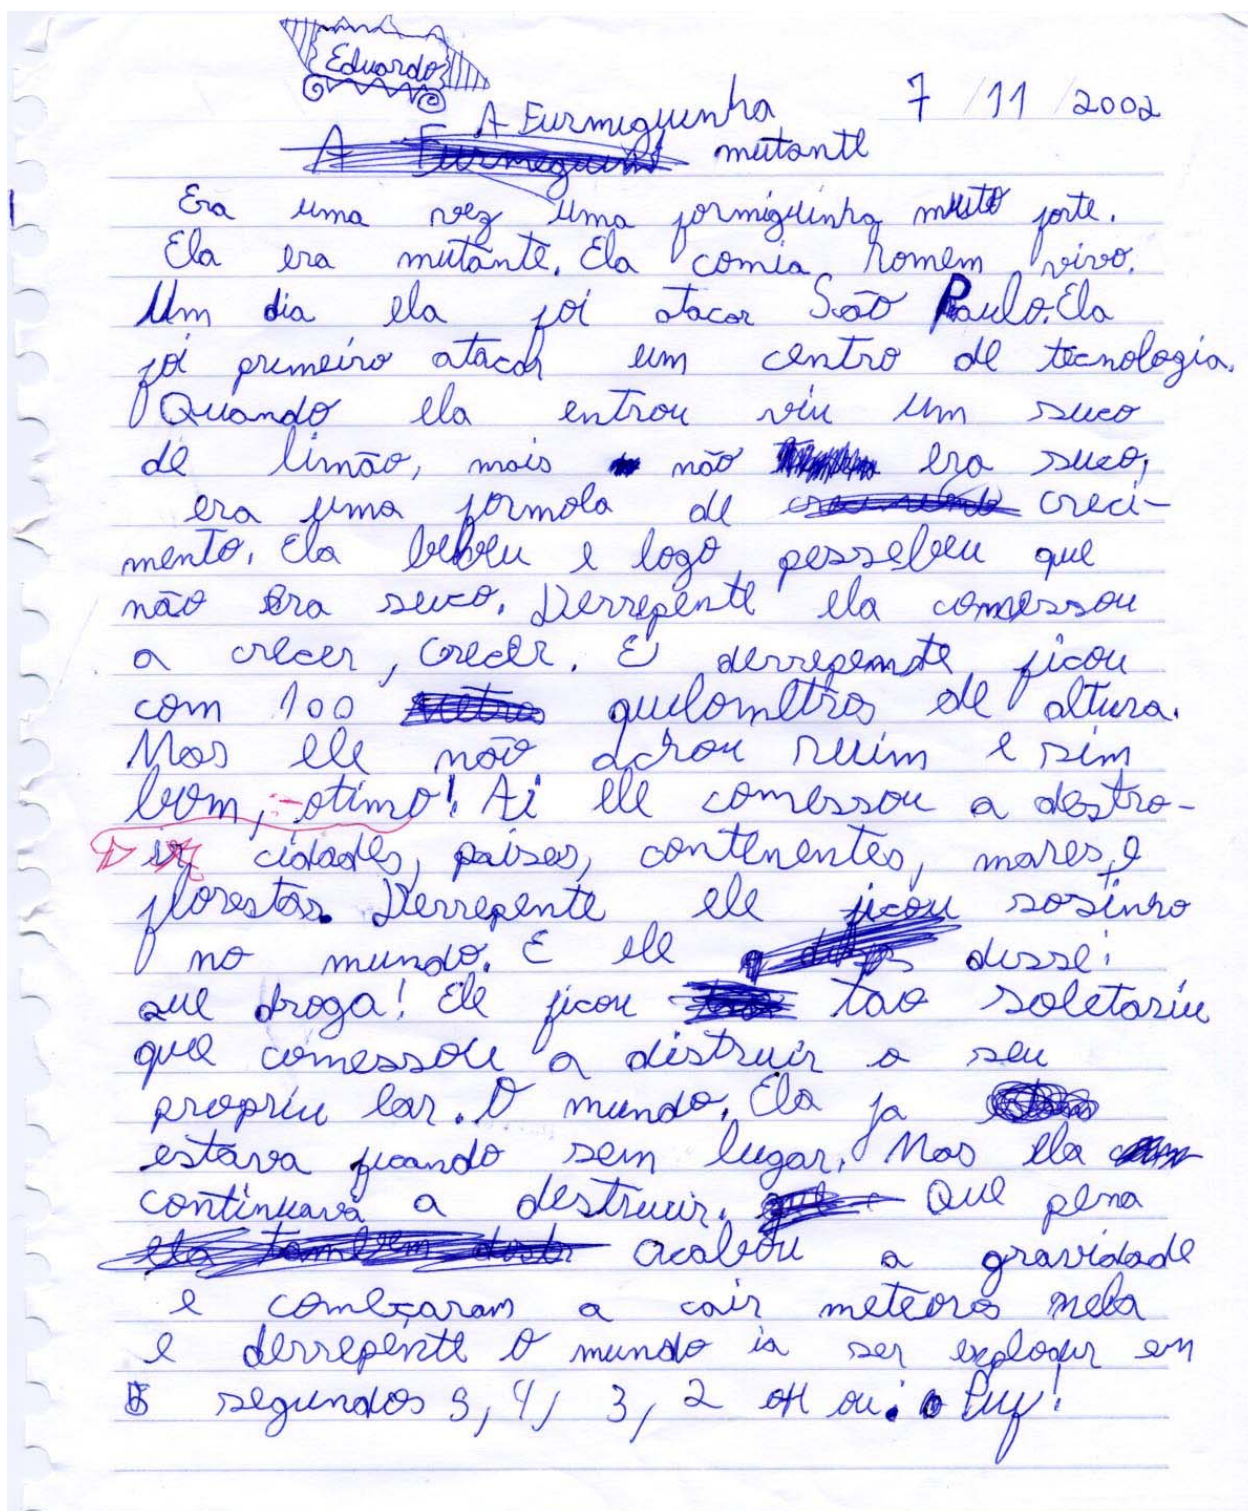 Eduardo
7 / 11 / 2002
A Furmiguinha
mutante
Era uma vez uma formiguinha muito forte.
Ela era mutante. Ela comia homem vivo.
Um dia ela foi atacar São Paulo. Ela
foi primeiro atacar um centro de tecnologia.
Quando ela entrou viu um suco
de limão, mais não era suco,
era uma formola de creci-
mento. Ela bebeu e logo pessebeu que
não era suco. Derrepente ela comessou
a crecer, crecer. E derrepente ficou
com 100 quilometros de altura.
Mas ele não achou ruim e sim
bom, otimo! Ai ele comessou a destro-
ir cidades, paises, continentes, mares, e
florestas. Derrepente ele ficou sosinho
no mundo. E ele disse:
que droga! Ele ficou tao soletariu
que comessou a distruir o seu
propriu lar. O mundo. Ela ja
estava ficando sem lugar. Mas ela
continuava a destruir. Que pena
acabou a gravidade
e começaram a cair meteoros nela
e derrepente o mundo ia ser explodir em
5 segundos 5, 4, 3, 2 Puf!